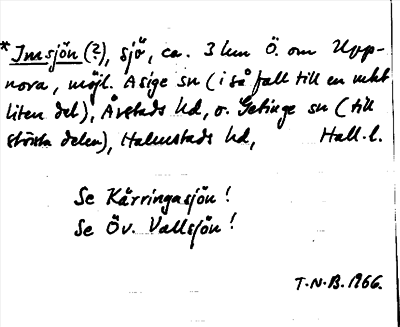 * Imsjön (?), sjö, ca. 3 km Ö. om Upp-
nora, möjl. Asige sn (i så fall till en mkt
liten del), Årstads hd, o. Getinge sn (till
största delen), Halmstads hd, Hall. l.
Se Kärringasjön!
Se Öv. Vallsjön!
T.N.B. 1966.